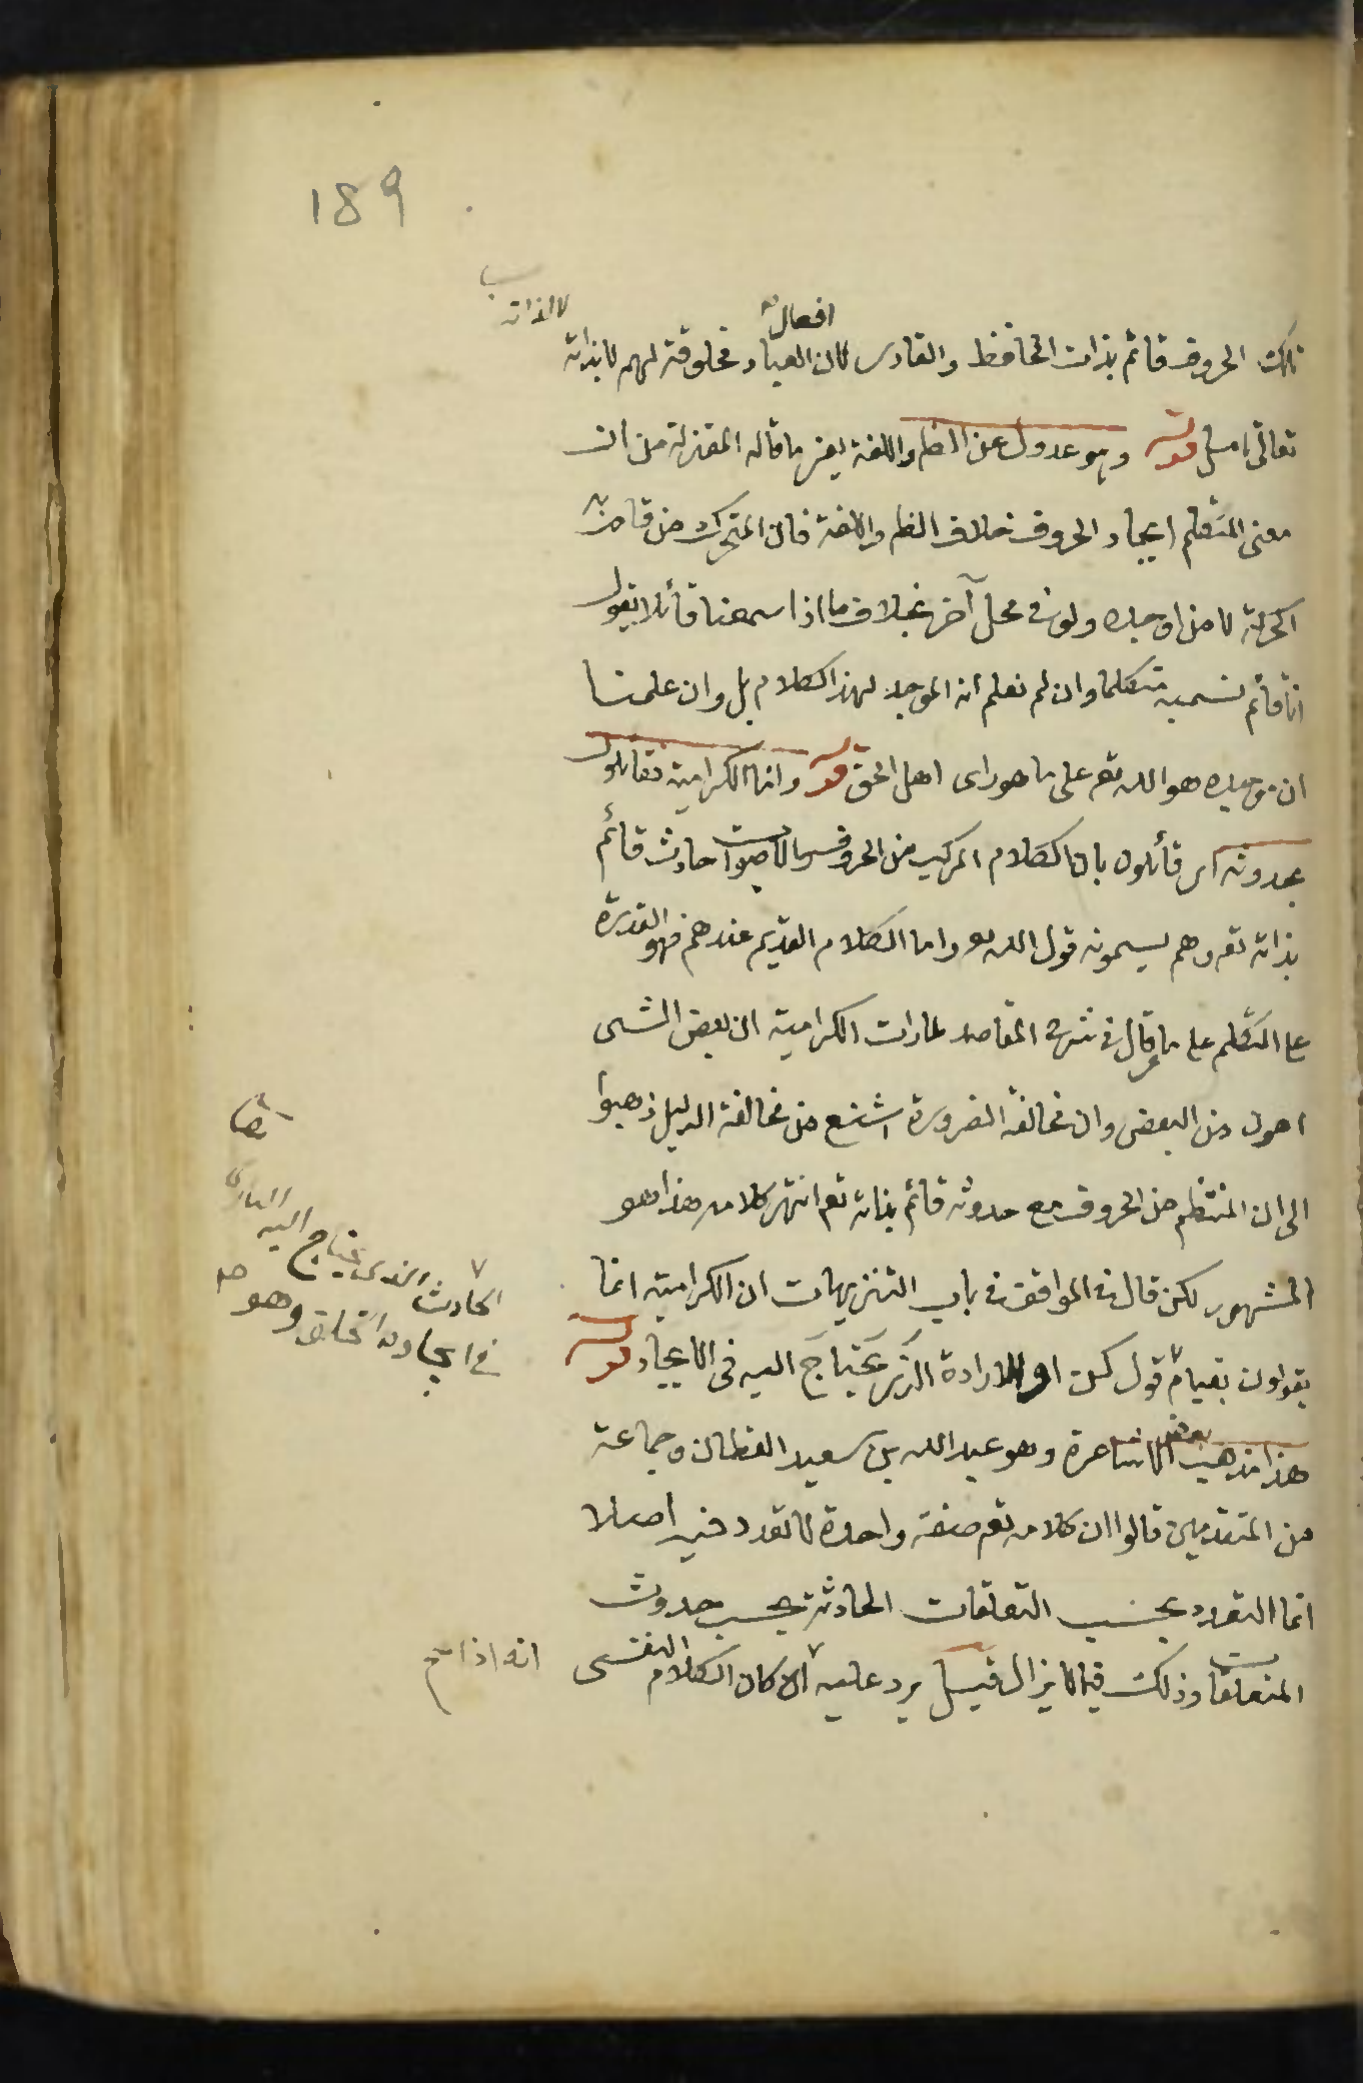 189
لا لذاته
افعال
تلك الحروف قائم بذات الحافظ والقارى لان العباد مخلوقة لهم لا بذاته
تعالى تأمل قوله وهو عدول عن الظ واللغة يعنى ما قاله المعتزلة من ان
معنى المتكلم ايجاد الحروف خلاف الظ واللغة فان المتحرك من قامت به
الحركة لا من اوجده ولو فى محل آخر بخلاف ما اذا سمعنا قائلا يقول
انا قائم نسميه متكلما وان لم نعلم انه الموجد لهذا الكلام بل وان علمنا
ان موجده هو الله تعم على ما هو راى اهل الحق قوله واما الكرامية فقائلون
بحدوثه اى قائلون بان الكلام المركب من الحروف والاصوات حادث قائم
بذاته تعم وهم يسمونه قول الله واما الكلام القديم عندهم فهو القدرة
على التكلم على ما قال فى شرح المقاصد لما رات الكرامية ان بعض الشى
اهون من البعض وان مخالفة الضرورة اشنع من مخالفة الدليل ذهبوا
الى ان المنتظم من الحروف مع حدوثه قائم بذاته تعم انتهى كلامه هذا هو
المشهور لكن قال فى المواقف فى باب التنزيهات ان الكرامية انما
يقولون بقيام قول كن او الارادة الذى يحتاج اليه فى الايجاد قوله
الحادث الذى يحتاج اليه البارى تعا
فى ايجاده الخلق وهو
هذا مذهب بعض الاشاعرة وهو عبد الله بن سعيد القطان وجماعة
من المتقدمين قالوا ان كلامه تعم صفة واحدة لا تعدد فيه اصلا
انما التعدد بحسب التعلقات الحادثة بحسب حدوث
المتعلقات وذلك فيما لا يزال قيل يرد عليه الا كان الكلام النفسى
انه اذا صح